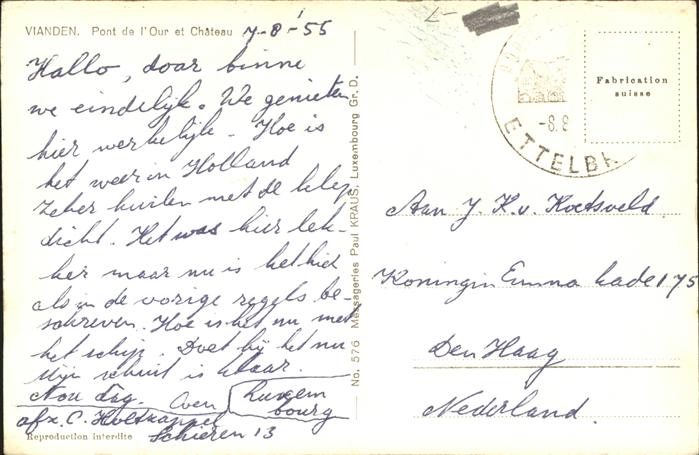 VIANDEN. Pont de l'Our et Château 7-8-'55
Hallo, daar binne
we eindelijk. We genieten
hier werkelijk. Hoe is
het weer in Holland
Zeker huilen met de
dicht. Het was hier lek-
ker maar nu is het
als in de vorige regels be-
schreven. Hoe is het nu met
het schip. Doet hij het nu
Mijn schuit is klaar.
Nou dag.
afz. C.
Luxem
bourg
Schieren 13
Reproduction interdite
No. 576 Messageries Paul KRAUS, Luxembourg Gr. D.
Fabrication
suisse
-8.8
ETTELB
Aan J. K. v. Koetsveld
Koningin Emma kade 175
Den Haag
Nederland.